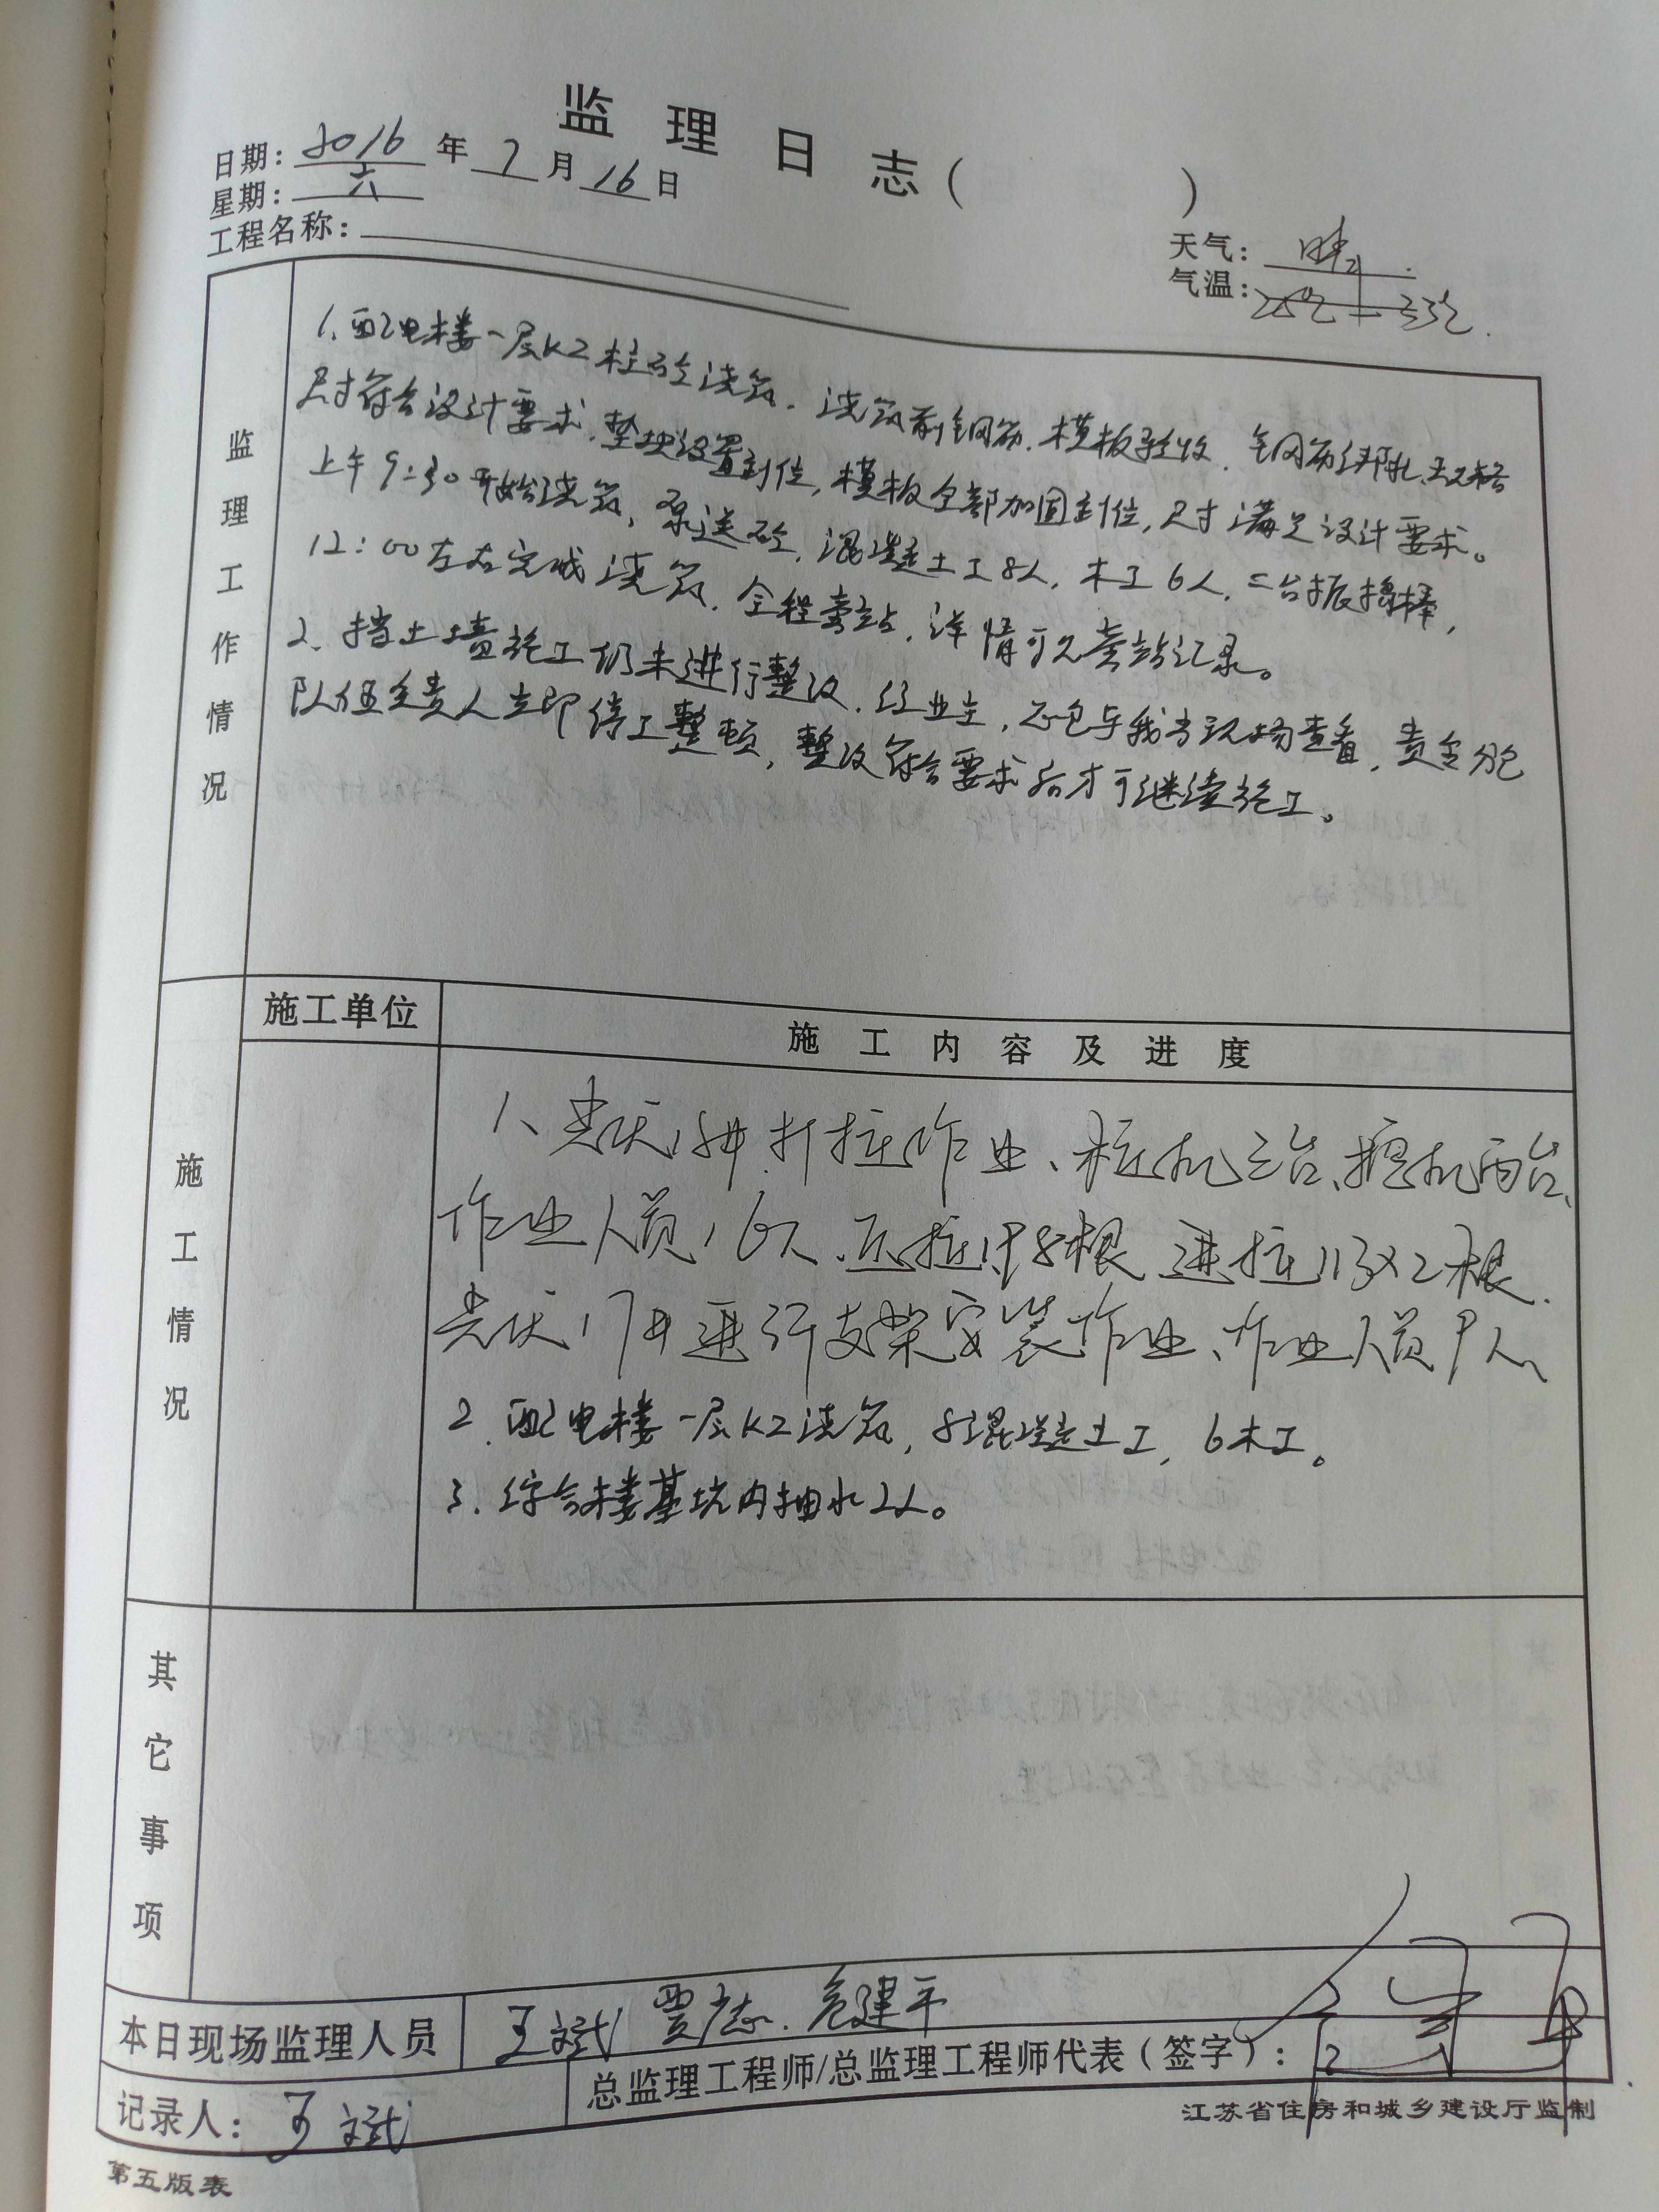 监理日志（ ）
日期：2016年7月16日
星期：六
天气：晴
工程名称：
气温：26℃－33℃
监理工作情况
1、配电楼一层KZ柱砼浇筑，浇筑前钢筋、模板验收，钢筋绑扎、规格
尺寸符合设计要求，垫块设置到位，模板全部加固到位，尺寸满足设计要求。
上午9:30开始浇筑，泵送砼，混凝土工8人，木工6人，二台振捣棒，
12:00左右完成浇筑，全程旁站，详情可见旁站记录。
2、挡土墙施工仍未进行整改，经业主，总包与我方现场查看，责令分包
队伍负责人立即停工整顿，整改符合要求后才可继续施工。
施工单位
施工内容及进度
施工情况
1、光伏 打桩作业、桩机三台、挖机两台、
作业人员16人、压桩 根 进桩113×2根.
光伏17# 进行支架安装作业、作业人员 人、
2、配电楼一层KZ浇筑，8混凝土工，6木工。
3、综合楼基坑内抽水2人。
其它事项
本日现场监理人员 王斌 贾志、危建平
总监理工程师/总监理工程师代表（签字）：
记录人：王斌
江苏省住房和城乡建设厅监制
第五版表